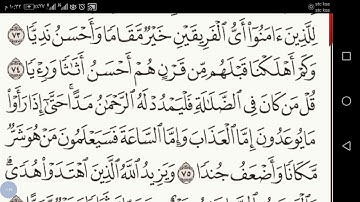 لِلَّذِينَ ءَامَنُوٓا۟ أَىُّ ٱلْفَرِيقَيْنِ خَيْرٌ مَّقَامًا وَأَحْسَنُ نَدِيًّا ٧٣
وَكَمْ أَهْلَكْنَا قَبْلَهُم مِّن قَرْنٍ هُمْ أَحْسَنُ أَثَٰثًا وَرِءْيًا ٧٤
قُلْ مَن كَانَ فِى ٱلضَّلَٰلَةِ فَلْيَمْدُدْ لَهُ ٱلرَّحْمَٰنُ مَدًّا حَتَّىٰٓ إِذَا رَأَوْا۟
مَا يُوعَدُونَ إِمَّا ٱلْعَذَابَ وَإِمَّا ٱلسَّاعَةَ فَسَيَعْلَمُونَ مَنْ هُوَ شَرٌّ
مَّكَانًا وَأَضْعَفُ جُندًا ٧٥ وَيَزِيدُ ٱللَّهُ ٱلَّذِينَ ٱهْتَدَوْا۟ هُدًى
stc ksa
stc ksa